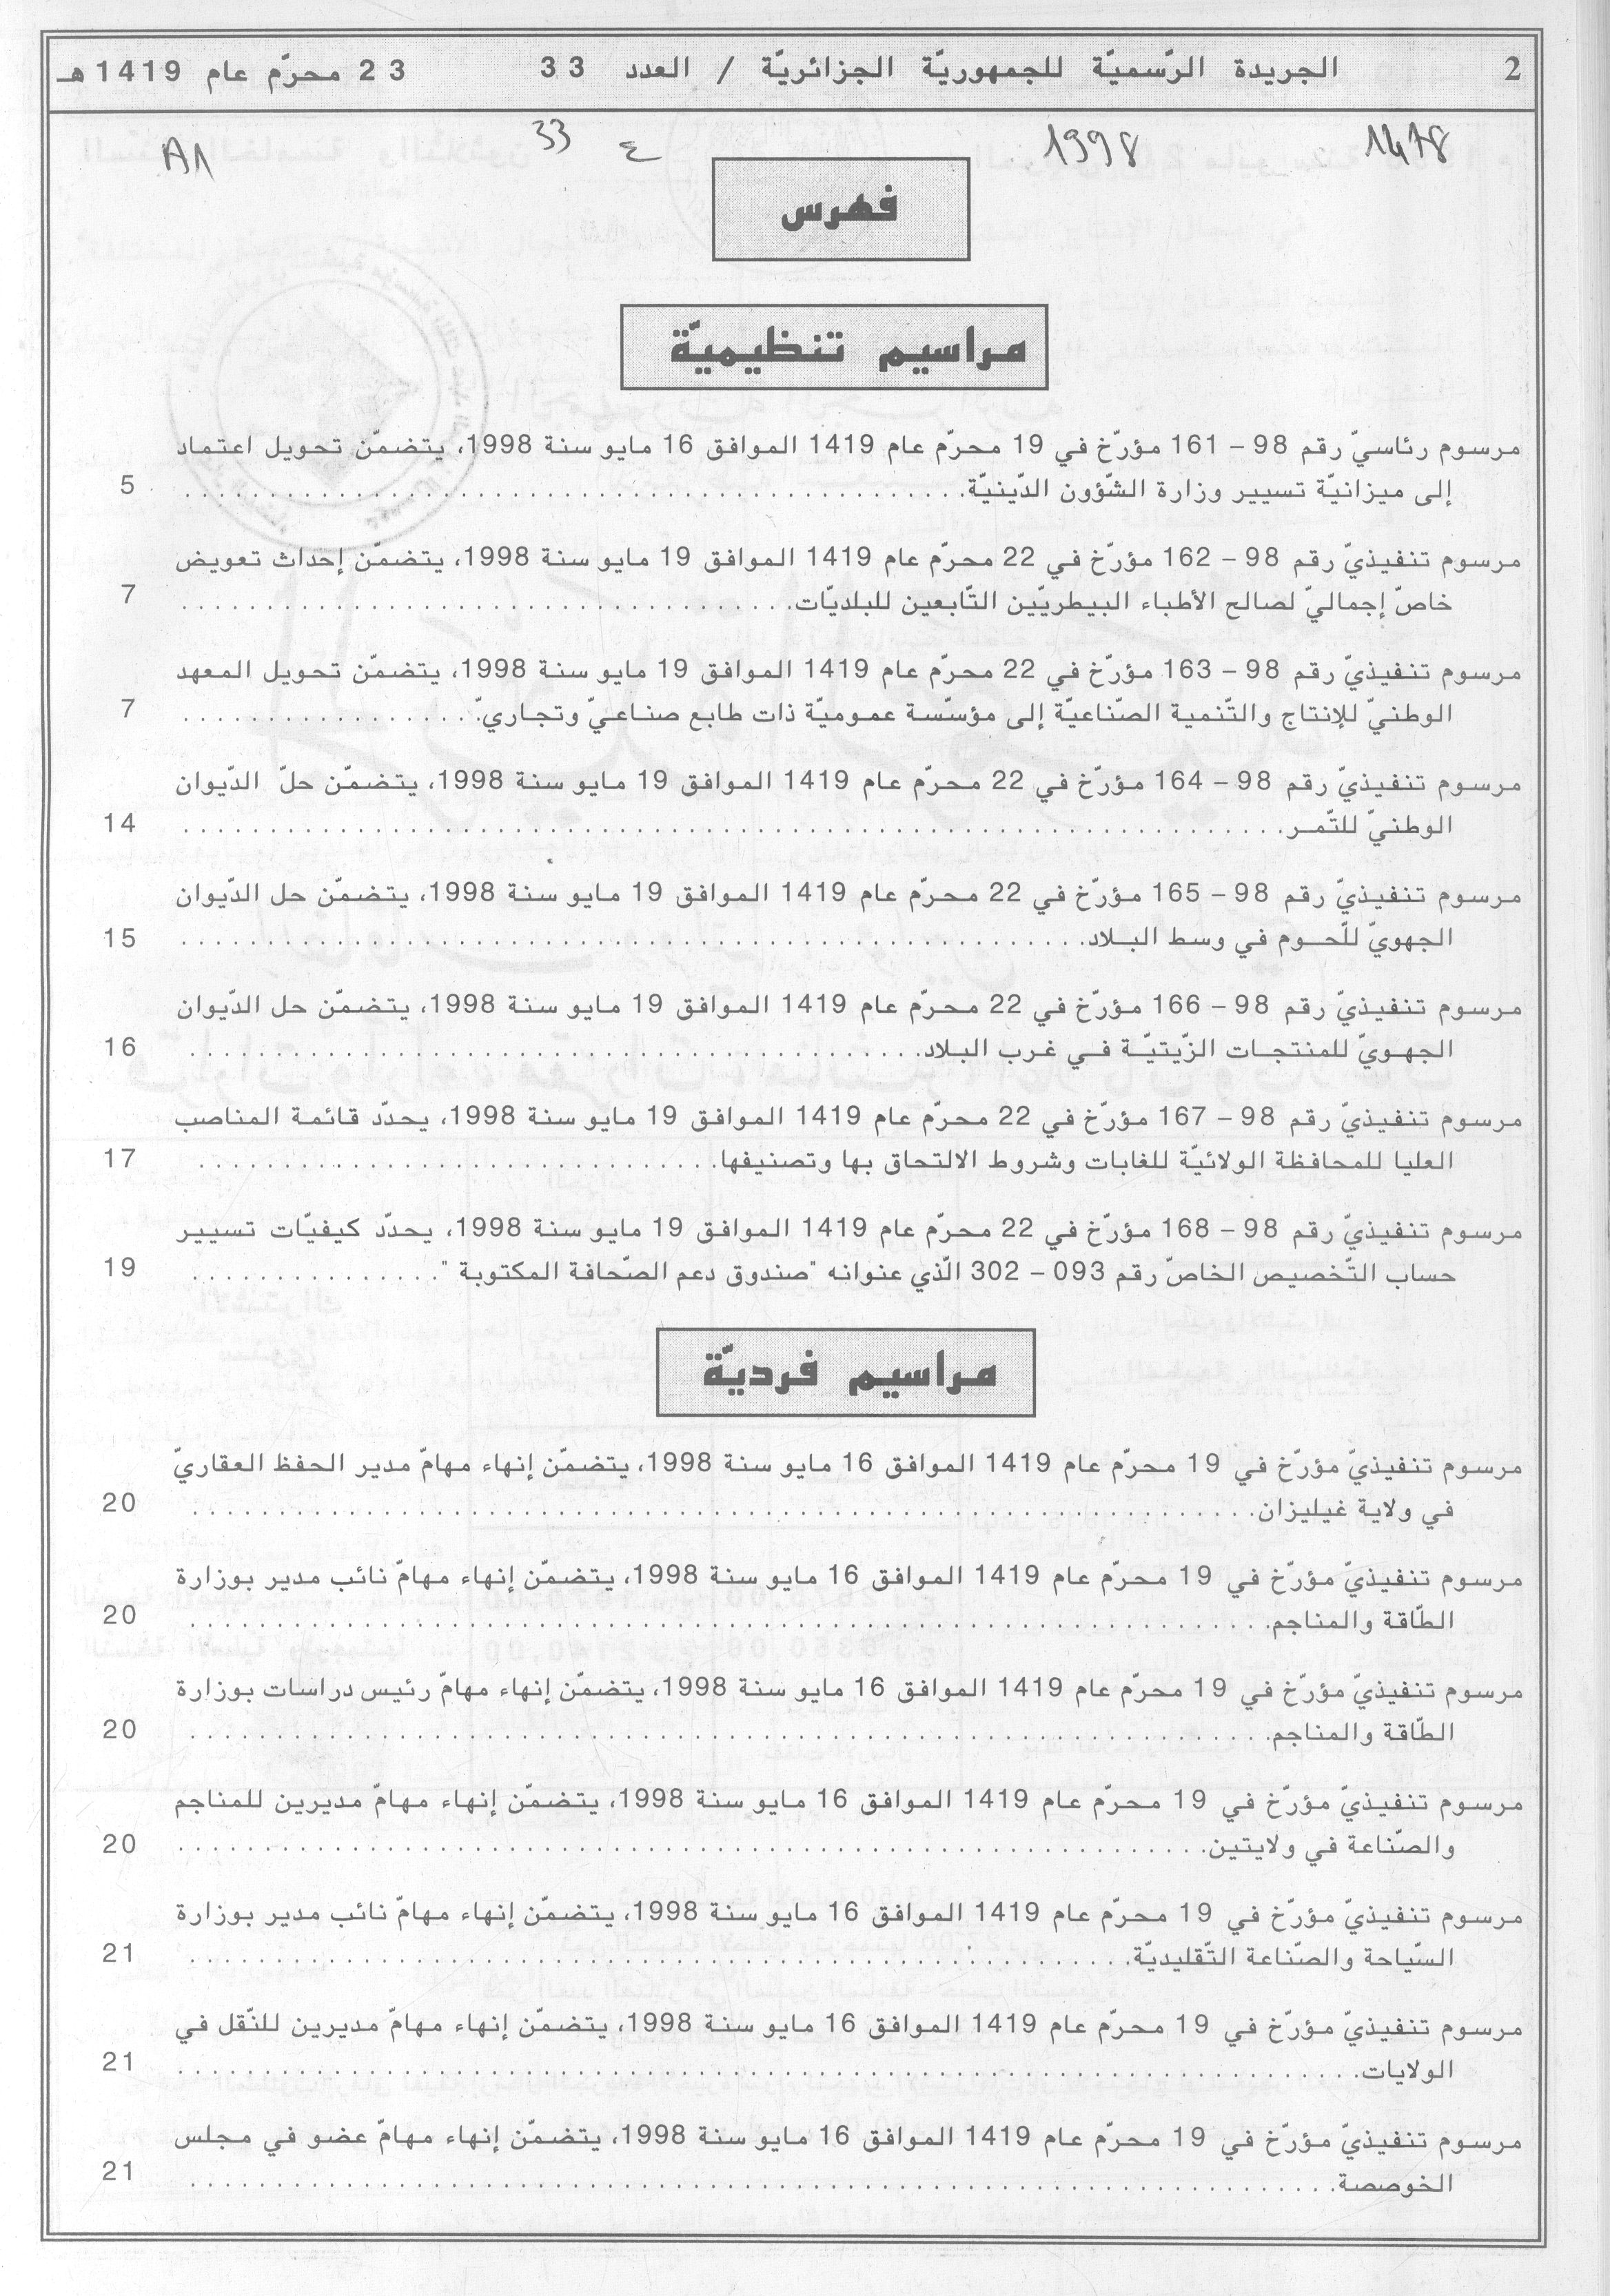 2 الجريدة الرّسميّة للجمهوريّة الجزائريّة / العدد 33 23 محرّم عام 1419 هـ
1478 1998 ع 33 A1
فهرس
مراسيم تنظيميّة
مرسوم رئاسيّ رقم 98 – 161 مؤرّخ في 19 محرّم عام 1419 الموافق 16 مايو سنة 1998، يتضمّن تحويل اعتماد
إلى ميزانيّة تسيير وزارة الشّؤون الدّينيّة. . . . . . . . . . 5
مرسوم تنفيذيّ رقم 98 – 162 مؤرّخ في 22 محرّم عام 1419 الموافق 19 مايو سنة 1998، يتضمّن إحداث تعويض
خاصّ إجماليّ لصالح الأطباء البيطريّين التّابعين للبلديّات. . . . . . . . . . 7
مرسوم تنفيذيّ رقم 98 – 163 مؤرّخ في 22 محرّم عام 1419 الموافق 19 مايو سنة 1998، يتضمّن تحويل المعهد
الوطنيّ للإنتاج والتّنمية الصّناعيّة إلى مؤسّسة عموميّة ذات طابع صناعيّ وتجاريّ. . . . . . . . . . 7
مرسوم تنفيذيّ رقم 98 – 164 مؤرّخ في 22 محرّم عام 1419 الموافق 19 مايو سنة 1998، يتضمّن حلّ الدّيوان
الوطنيّ للتّمـر. . . . . . . . . . 14
مرسوم تنفيذيّ رقم 98 – 165 مؤرّخ في 22 محرّم عام 1419 الموافق 19 مايو سنة 1998، يتضمّن حل الدّيوان
الجهويّ للّحـوم في وسط البـلاد. . . . . . . . . . 15
مرسوم تنفيذيّ رقم 98 – 166 مؤرّخ في 22 محرّم عام 1419 الموافق 19 مايو سنة 1998، يتضمّن حل الدّيوان
الجهـويّ للمنتجـات الزّيتيّـة فـي غـرب البـلاد. . . . . . . . . . 16
مرسوم تنفيذيّ رقم 98 – 167 مؤرّخ في 22 محرّم عام 1419 الموافق 19 مايو سنة 1998، يحدّد قائمة المناصب
العليا للمحافظة الولائيّة للغابات وشروط الالتحاق بها وتصنيفها. . . . . . . . . . 17
مرسوم تنفيذيّ رقم 98 – 168 مؤرّخ في 22 محرّم عام 1419 الموافق 19 مايو سنة 1998، يحدّد كيفيّات تسيير
حساب التّخصيص الخاصّ رقم 093 – 302 الّذي عنوانه "صندوق دعم الصّحافة المكتوبة ". . . . . . . . . . 19
مراسيم فرديّة
مرسوم تنفيذيّ مؤرّخ في 19 محرّم عام 1419 الموافق 16 مايو سنة 1998، يتضمّن إنهاء مهامّ مدير الحفظ العقاريّ
في ولاية غيليزان. . . . . . . . . . 20
مرسوم تنفيذيّ مؤرّخ في 19 محرّم عام 1419 الموافق 16 مايو سنة 1998، يتضمّن إنهاء مهامّ نائب مدير بوزارة
الطّاقة والمناجم. . . . . . . . . . 20
مرسوم تنفيذيّ مؤرّخ في 19 محرّم عام 1419 الموافق 16 مايو سنة 1998، يتضمّن إنهاء مهامّ رئيس دراسات بوزارة
الطّاقة والمناجم. . . . . . . . . . 20
مرسوم تنفيذيّ مؤرّخ في 19 محرّم عام 1419 الموافق 16 مايو سنة 1998، يتضمّن إنهاء مهامّ مديرين للمناجم
والصّناعة في ولايتين. . . . . . . . . . 20
مرسوم تنفيذيّ مؤرّخ في 19 محرّم عام 1419 الموافق 16 مايو سنة 1998، يتضمّن إنهاء مهامّ نائب مدير بوزارة
السّياحة والصّناعة التّقليديّة. . . . . . . . . . 21
مرسوم تنفيذيّ مؤرّخ في 19 محرّم عام 1419 الموافق 16 مايو سنة 1998، يتضمّن إنهاء مهامّ مديرين للنّقل في
الولايات. . . . . . . . . . 21
مرسوم تنفيذيّ مؤرّخ في 19 محرّم عام 1419 الموافق 16 مايو سنة 1998، يتضمّن إنهاء مهامّ عضو في مجلس
الخوصصة. . . . . . . . . . 21